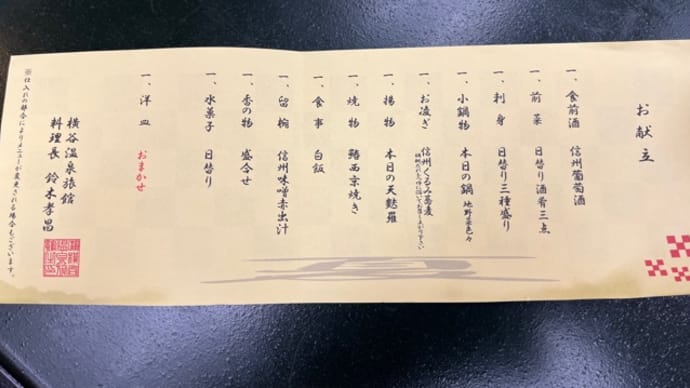 お献立
一、食前酒 信州葡萄酒
一、前菜 日替り酒肴三点
一、刺身 日替り三種盛り
一、小鍋物 本日の鍋 地野菜色々
一、お凌ぎ 信州くるみ蕎麦
一、揚物 本日の天麩羅
一、焼物 鰆西京焼き
一、食事 白飯
一、留椀 信州味噌赤出汁
一、香の物 盛合せ
一、水菓子 日替り
一、洋皿 おまかせ
横谷温泉旅館
料理長 鈴木孝昌
※仕入れの都合によりメニューが変更される場合もございます。